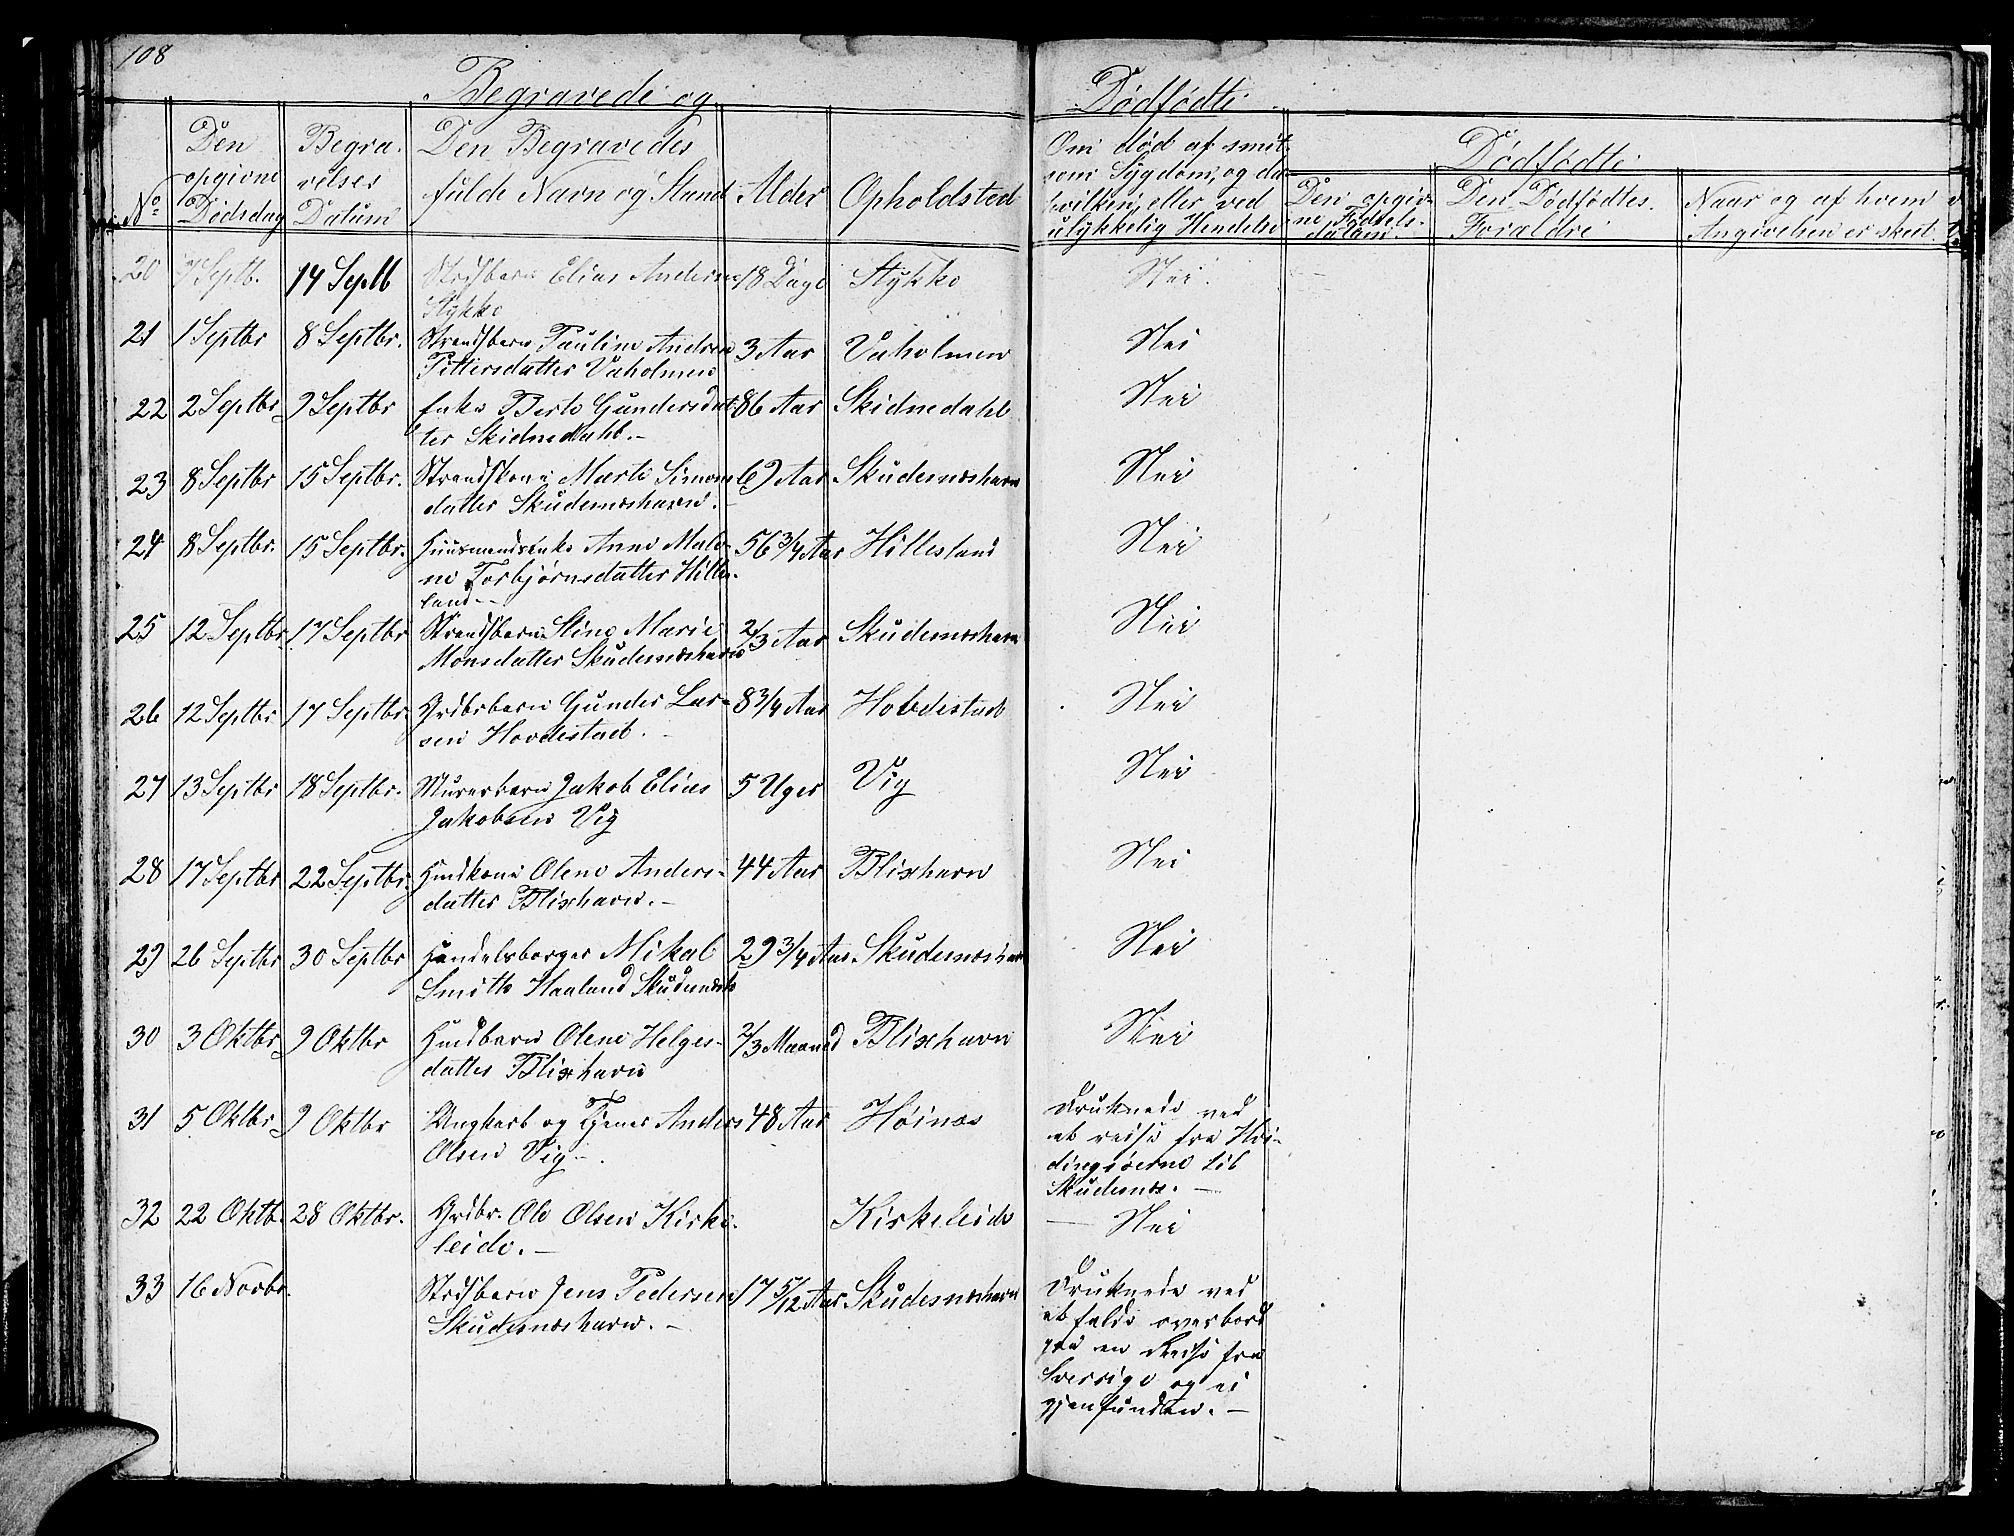 108
Begravede og
Dødfødte
No
Den opgivne Dødsdag
Begravelses Datum
Den Begravedes fulde Navn og Stand
Alder
Opholdsted
Om død af smitsom Sygdom, og da hvilken, eller ved ulykkelig Hendelse
Dødfødte
Den opgivne Fødselsdatum
Den Dødfødtes Foraldre
Naar og af hvem Angivelsen er skeet
20 7 Septb. 14 Septb Strdsbarn Elias Anderse 18 Dage Stykke Nei.
Stykke
21 1 Septbr 8 Septbr. Strandsbarn Pauline Andrea 3 Aar Vaholmen Nei
Pittersdatter Vaholmen
22 2 Septbr 9 Septbr Enke Berte Gundersdat 86 Aar Skidnedahl Nei
ter Skidnedahl.-
23 8 Septbr 15 Septbr. Strandskone Marte Simons 69 Aar Skudesnæshavn Nei
datter Skudesnæshavn.-
24 8 Septbr. 15 Septbr. Huusmandsenke Anne Male- 56 3/4 Aar Hillesland Nei
ne Torbjørnsdatter Hilles-
land.-
25 12 Septbr. 17 Septbr Strandsbarn Stine Marie 2/3 Aar Skudesnæshavn Nei
Monsdatter Skudesnæshavn
26 12 Septbr 17 Septbr. Grdbrbarn Gunder Lar- 8 3/4 Aar Hovdestad Nei
sen Hovdestad.-
27 13 Septbr 18 Septbr. Murerbarn Jakob Elias 5 Uger Vig Nei
Jakobsen Vig
28 17 Septbr 22 Septbr. Hmdkone Olene Anders- 44 Aar Blixhavn Nei
datter Blixhavn.-
29 26 Septbr 30 Septbr Handelsborger Mikal 29 3/4 Aar. Skudesnæshavn Nei
Smith Haaland Skudesnæsh
30 3 Oktbr 9 Oktbr Hmdbarn Olene Helges- 2/3 Maaned Blixhavn Nei
datter Blixhavn
31 5 Oktbr. 9 Oktbr Ungkarl og Tjener Anders 48 Aar Høinæs Druknede ved
Olsen Vig.-
et reise fra Hvi-
dingsøerne til
Skudesnæs.-
32 22 Oktb. 28 Oktbr. Grdbr. Ole Olsen Kirke- Kirkeleide - Nei
leide.-
33 16 Novbr. Strdsbarn Jens Pedersen 17 5/12 Aar Skudesnæshavn Druknede ved
Skudesnæshavn.-
et fald overbord
paa en Reise fra
Sverrige og ei
gjenfunden.-